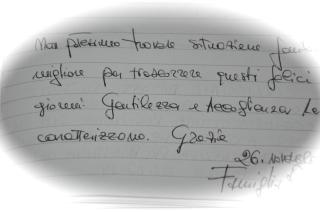 Non potevamo trovare situazione
migliore per trascorrere questi felici
giorni. Gentilezza e Accoglienza
caratterizzano. Grazie
26.
Famiglia